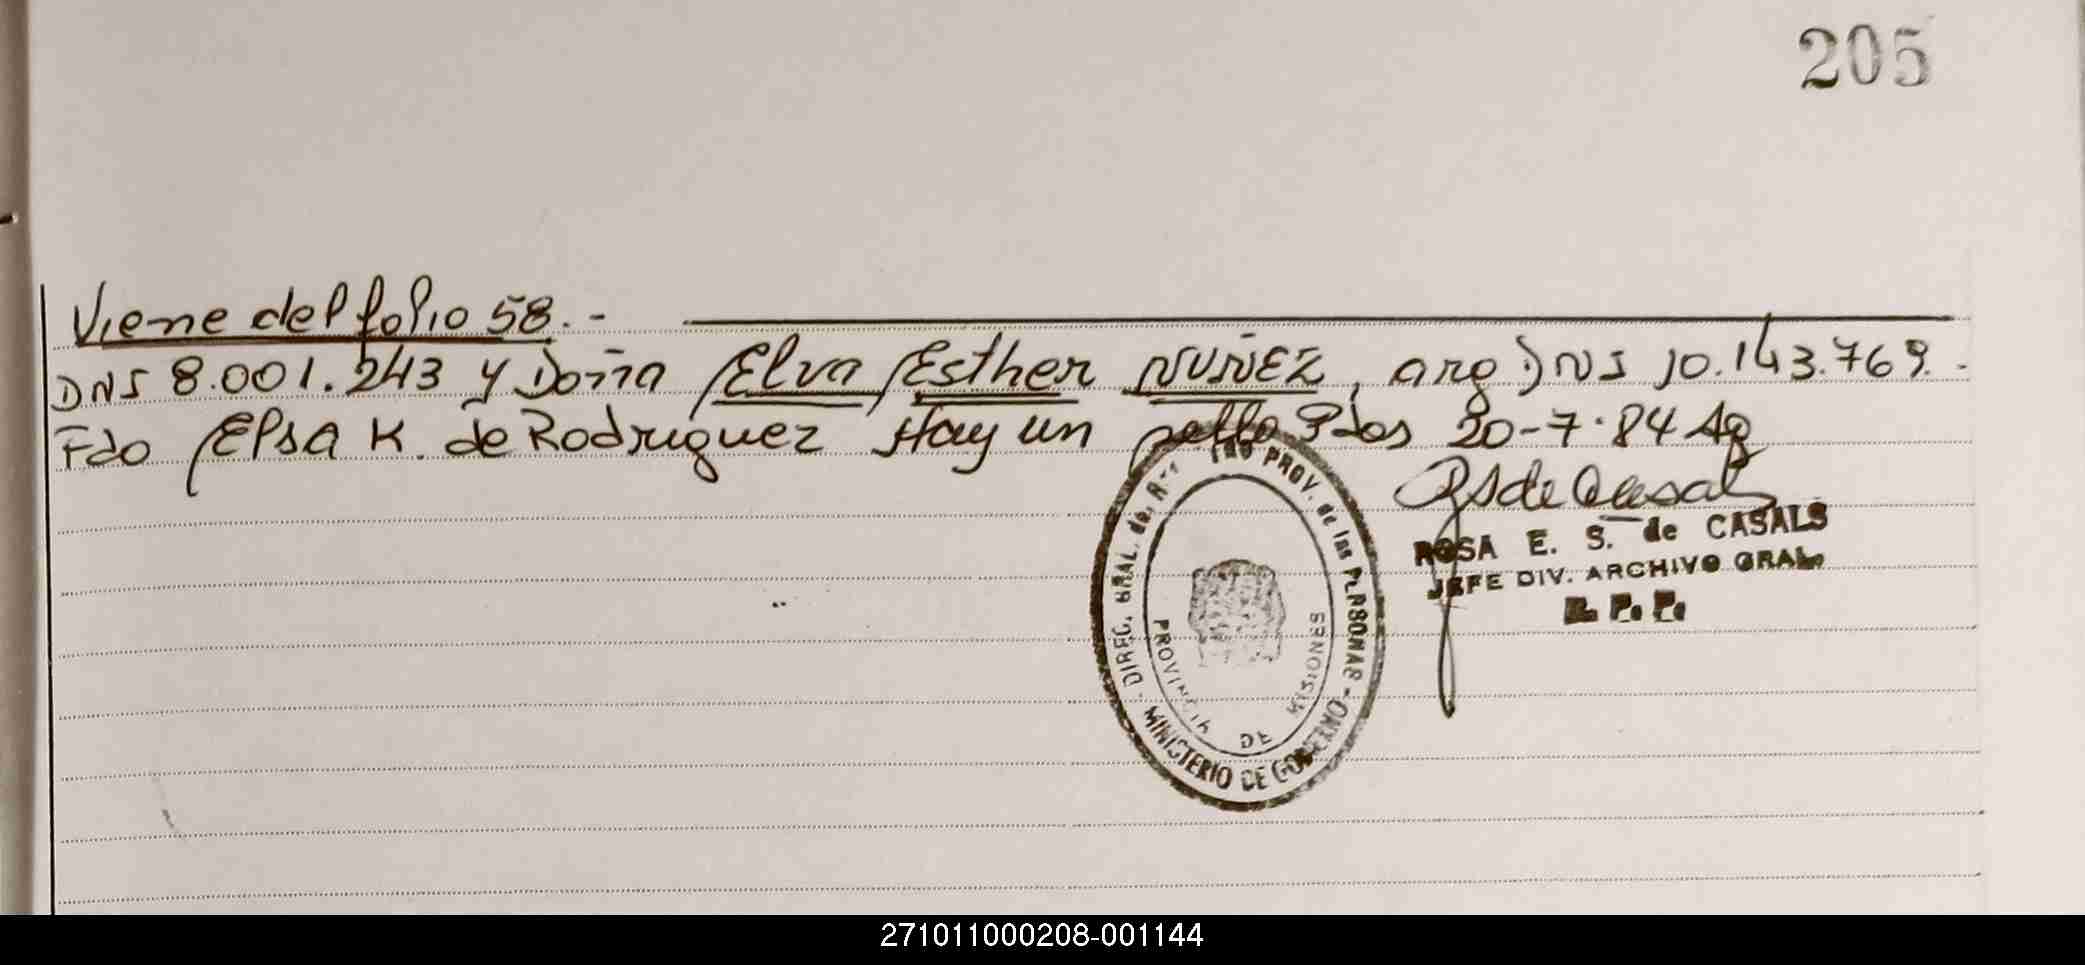 205
Viene del folio 58.-
DNI 8.001.243 y Doña Elva Esther NUÑEZ, arg DNI 10.143.769.-
Fdo Elsa K. de Rodriguez Hay un sello Pdas 20-7-84 Ag
RSdeCasals
ROSA E. S. de CASALS
JEFE DIV. ARCHIVO GRAL.
R. P. P.
DIREC. GRAL. del PROV. de las PERSONAS - MINISTERIO DE GOBIERNO -
PROVINCIA DE MISIONES
271011000208-001144